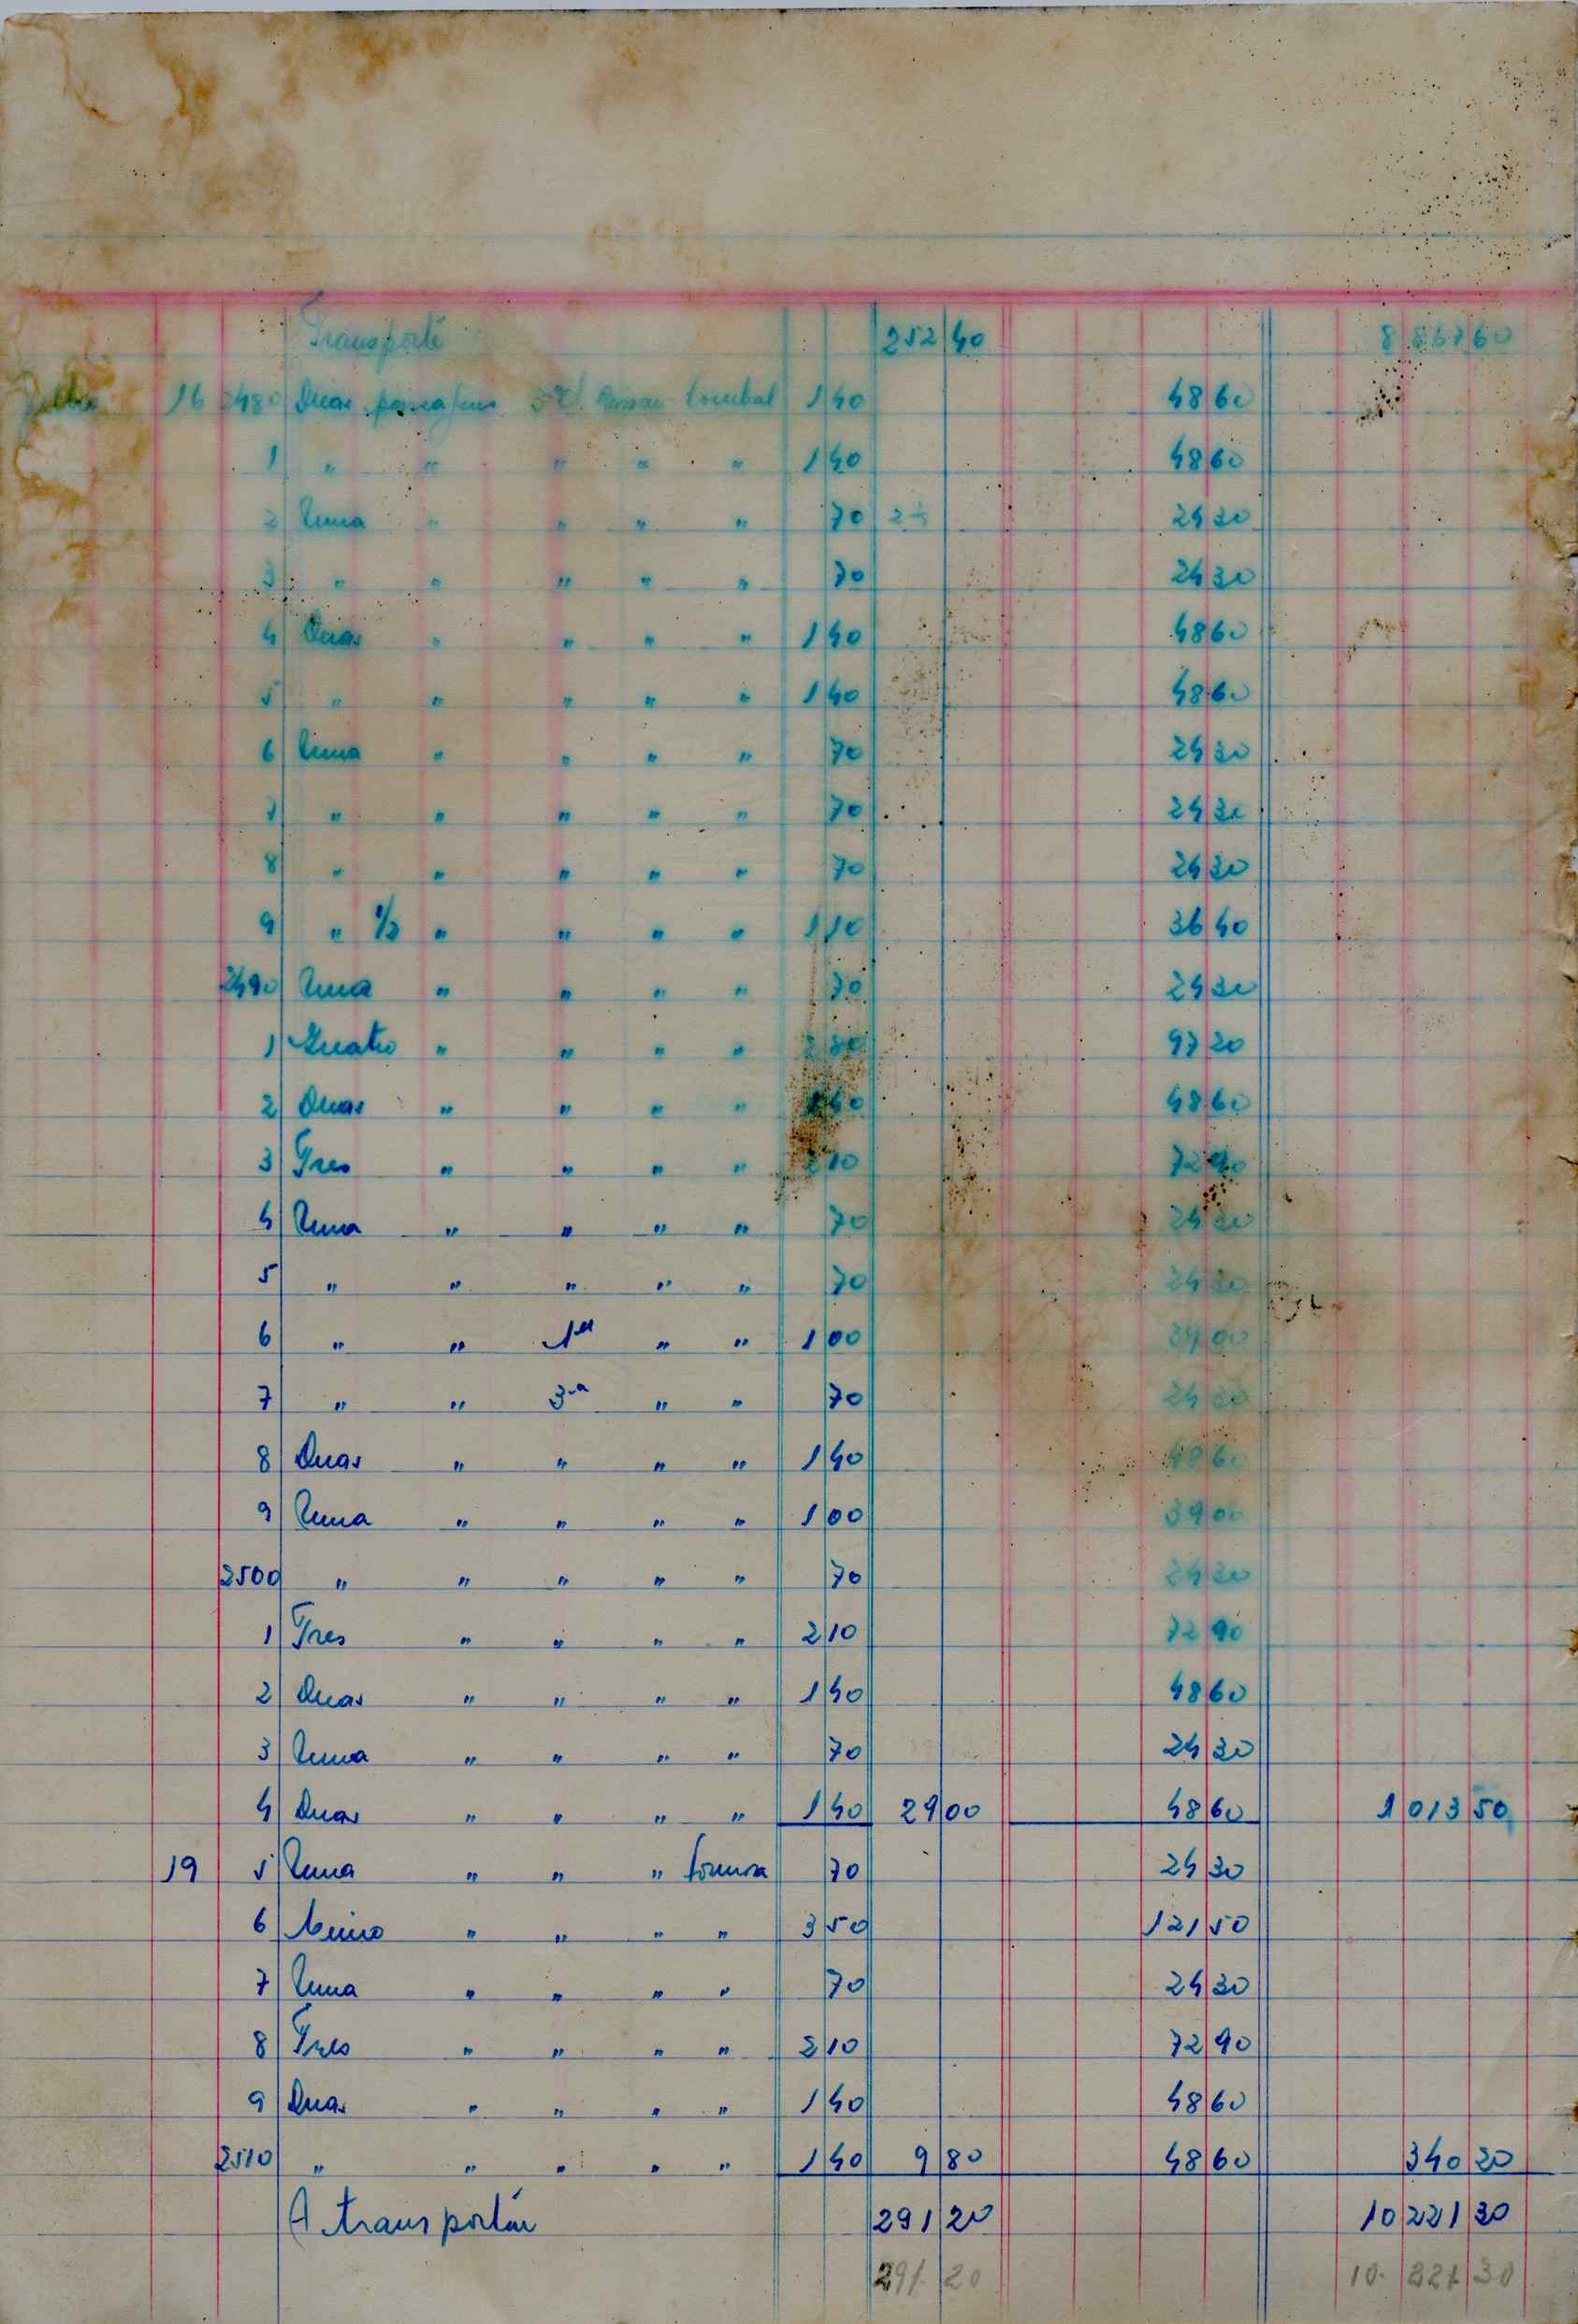 Transporte 252 40 8 867 60
16 2480 Duas passagens 3ª cl. 1 40 48 60
1 " " " " " 1 40 48 60
2 Uma " " " " 70 24 30
3 " " " " " 70 24 30
4 Duas " " " " 1 40 48 60
5 " " " " " 1 40 48 60
6 Uma " " " " 70 24 30
7 " " " " " 70 24 30
8 " " " " " 70 24 30
9 " 1/2 " " " " 1 10 36 40
2490 Uma " " " " 70 24 30
1 Quatro " " " " 2 80 97 20
2 Duas " " " " 1 40 48 60
3 Tres " " " " 2 10 72 90
4 Uma " " " " 70 24 30
5 " " " " " 70 24 30
6 " " 1ª " " 1 00 39 00
7 " " 3ª " " 70 24 30
8 Duas " " " " 1 40 48 60
9 Uma " " " " 1 00 39 00
2500 " " " " " 70 24 30
1 Tres " " " " 2 10 72 90
2 Duas " " " " 1 40 48 60
3 Uma " " " " 70 24 30
4 Duas " " " " 1 40 29 00 48 60 1 013 50
19 5 Uma " " " 70 24 30
6 Cinco " " " " 3 50 121 50
7 Uma " " " " 70 24 30
8 Tres " " " " 2 10 72 90
9 Duas " " " " 1 40 48 60
2510 " " " " " 1 40 9 80 48 60 340 20
A transportar 291 20 10 221 30
291. 20 10. 221 30